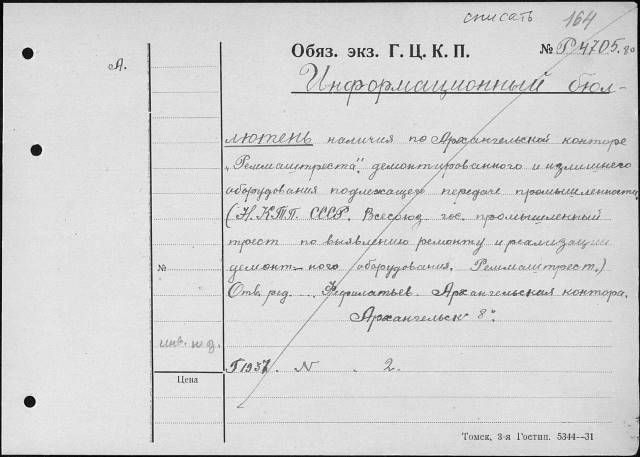 списать 164
Обяз. экз. Г. Ц. К. П. № Р 4705. 80
А.
Информационный бюл-
лютень наличия по Архангельской конторе
„Реммаштреста”. демонтированного и излишнего
оборудования подлежащего передаче промышленности
(Н.КТП. СССР. Всесоюз. гос. промышленный
трест по выявлению ремонту и реализации
демонт-ного оборудования. Реммаштрест.)
Отв. ред. ... Архангельская контора.
Архангельск 8°.
№
инв.
Г 1937. N . 2.
Цена
Томск, 3-я Гостип. 5344—31